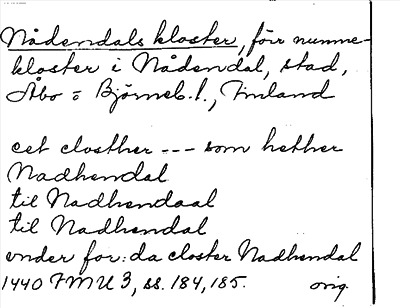 Nådendals kloster, förr nunne-
kloster i Nådendal, stad,
Åbo o Björneb. l., Finland
eet closther --- som hether
Nadhendal
til Nadhendaal
til Nadhendal
vnder for:da closter Nadhendal
1440 FMU 3, ss. 184, 185. orig.